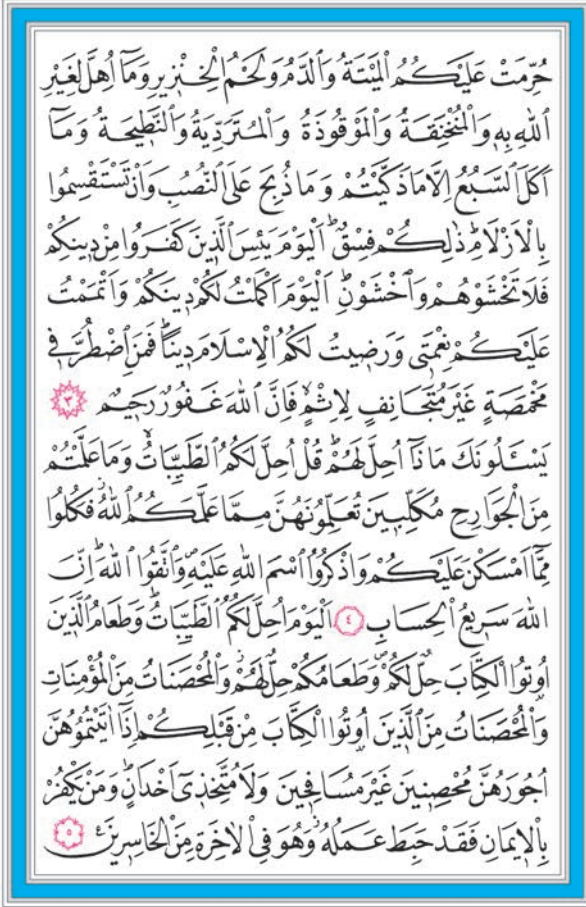 حُرِّمَتْ عَلَيْكُمُ الْمَيْتَةُ وَالدَّمُ وَلَحْمُ الْخِنْزِيرِ وَمَٓا اُهِلَّ لِغَيْرِ
اللّٰهِ بِهِ وَالْمُنْخَنِقَةُ وَالْمَوْقُوذَةُ وَالْمُتَرَدِّيَةُ وَالنَّط۪يحَةُ وَمَٓا
اَكَلَ السَّبُعُ اِلَّا مَا ذَكَّيْتُمْ وَمَا ذُبِحَ عَلَى النُّصُبِ وَاَنْ تَسْتَقْسِمُوا
بِالْاَزْلَامِۜ ذٰلِكُمْ فِسْقٌۜ اَلْيَوْمَ يَئِسَ الَّذ۪ينَ كَفَرُوا مِنْ د۪ينِكُمْ
فَلَا تَخْشَوْهُمْ وَاخْشَوْنِۜ اَلْيَوْمَ اَكْمَلْتُ لَكُمْ د۪ينَكُمْ وَاَتْمَمْتُ
عَلَيْكُمْ نِعْمَت۪ي وَرَض۪يتُ لَكُمُ الْاِسْلَامَ د۪يناًۜ فَمَنِ اضْطُرَّ ف۪ي
مَخْمَصَةٍ غَيْرَ مُتَجَانِفٍ لِاِثْمٍۙ فَاِنَّ اللّٰهَ غَفُورٌ رَح۪يمٌ ﴿٣﴾
يَسْـَٔلُونَكَ مَاذَٓا اُحِلَّ لَهُمْۜ قُلْ اُحِلَّ لَكُمُ الطَّيِّبَاتُۙ وَمَا عَلَّمْتُمْ
مِنَ الْجَوَارِحِ مُكَلِّب۪ينَ تُعَلِّمُونَهُنَّ مِمَّا عَلَّمَكُمُ اللّٰهُۘ فَكُلُوا
مِمَّٓا اَمْسَكْنَ عَلَيْكُمْ وَاذْكُرُوا اسْمَ اللّٰهِ عَلَيْهِۖ وَاتَّقُوا اللّٰهَۜ اِنَّ
اللّٰهَ سَر۪يعُ الْحِسَابِ ﴿٤﴾ اَلْيَوْمَ اُحِلَّ لَكُمُ الطَّيِّبَاتُۜ وَطَعَامُ الَّذ۪ينَ
اُو۫تُوا الْكِتَابَ حِلٌّ لَكُمْۖ وَطَعَامُكُمْ حِلٌّ لَهُمْۘ وَالْمُحْصَنَاتُ مِنَ الْمُؤْمِنَاتِ
وَالْمُحْصَنَاتُ مِنَ الَّذ۪ينَ اُو۫تُوا الْكِتَابَ مِنْ قَبْلِكُمْ اِذَٓا اٰتَيْتُمُوهُنَّ
اُجُورَهُنَّ مُحْصِن۪ينَ غَيْرَ مُسَافِح۪ينَ وَلَا مُتَّخِذ۪ٓي اَخْدَانٍۜ وَمَنْ يَكْفُرْ
بِالْا۪يمَانِ فَقَدْ حَبِطَ عَمَلُهُۘ وَهُوَ فِي الْاٰخِرَةِ مِنَ الْخَاسِر۪ينَ۟ ﴿٥﴾